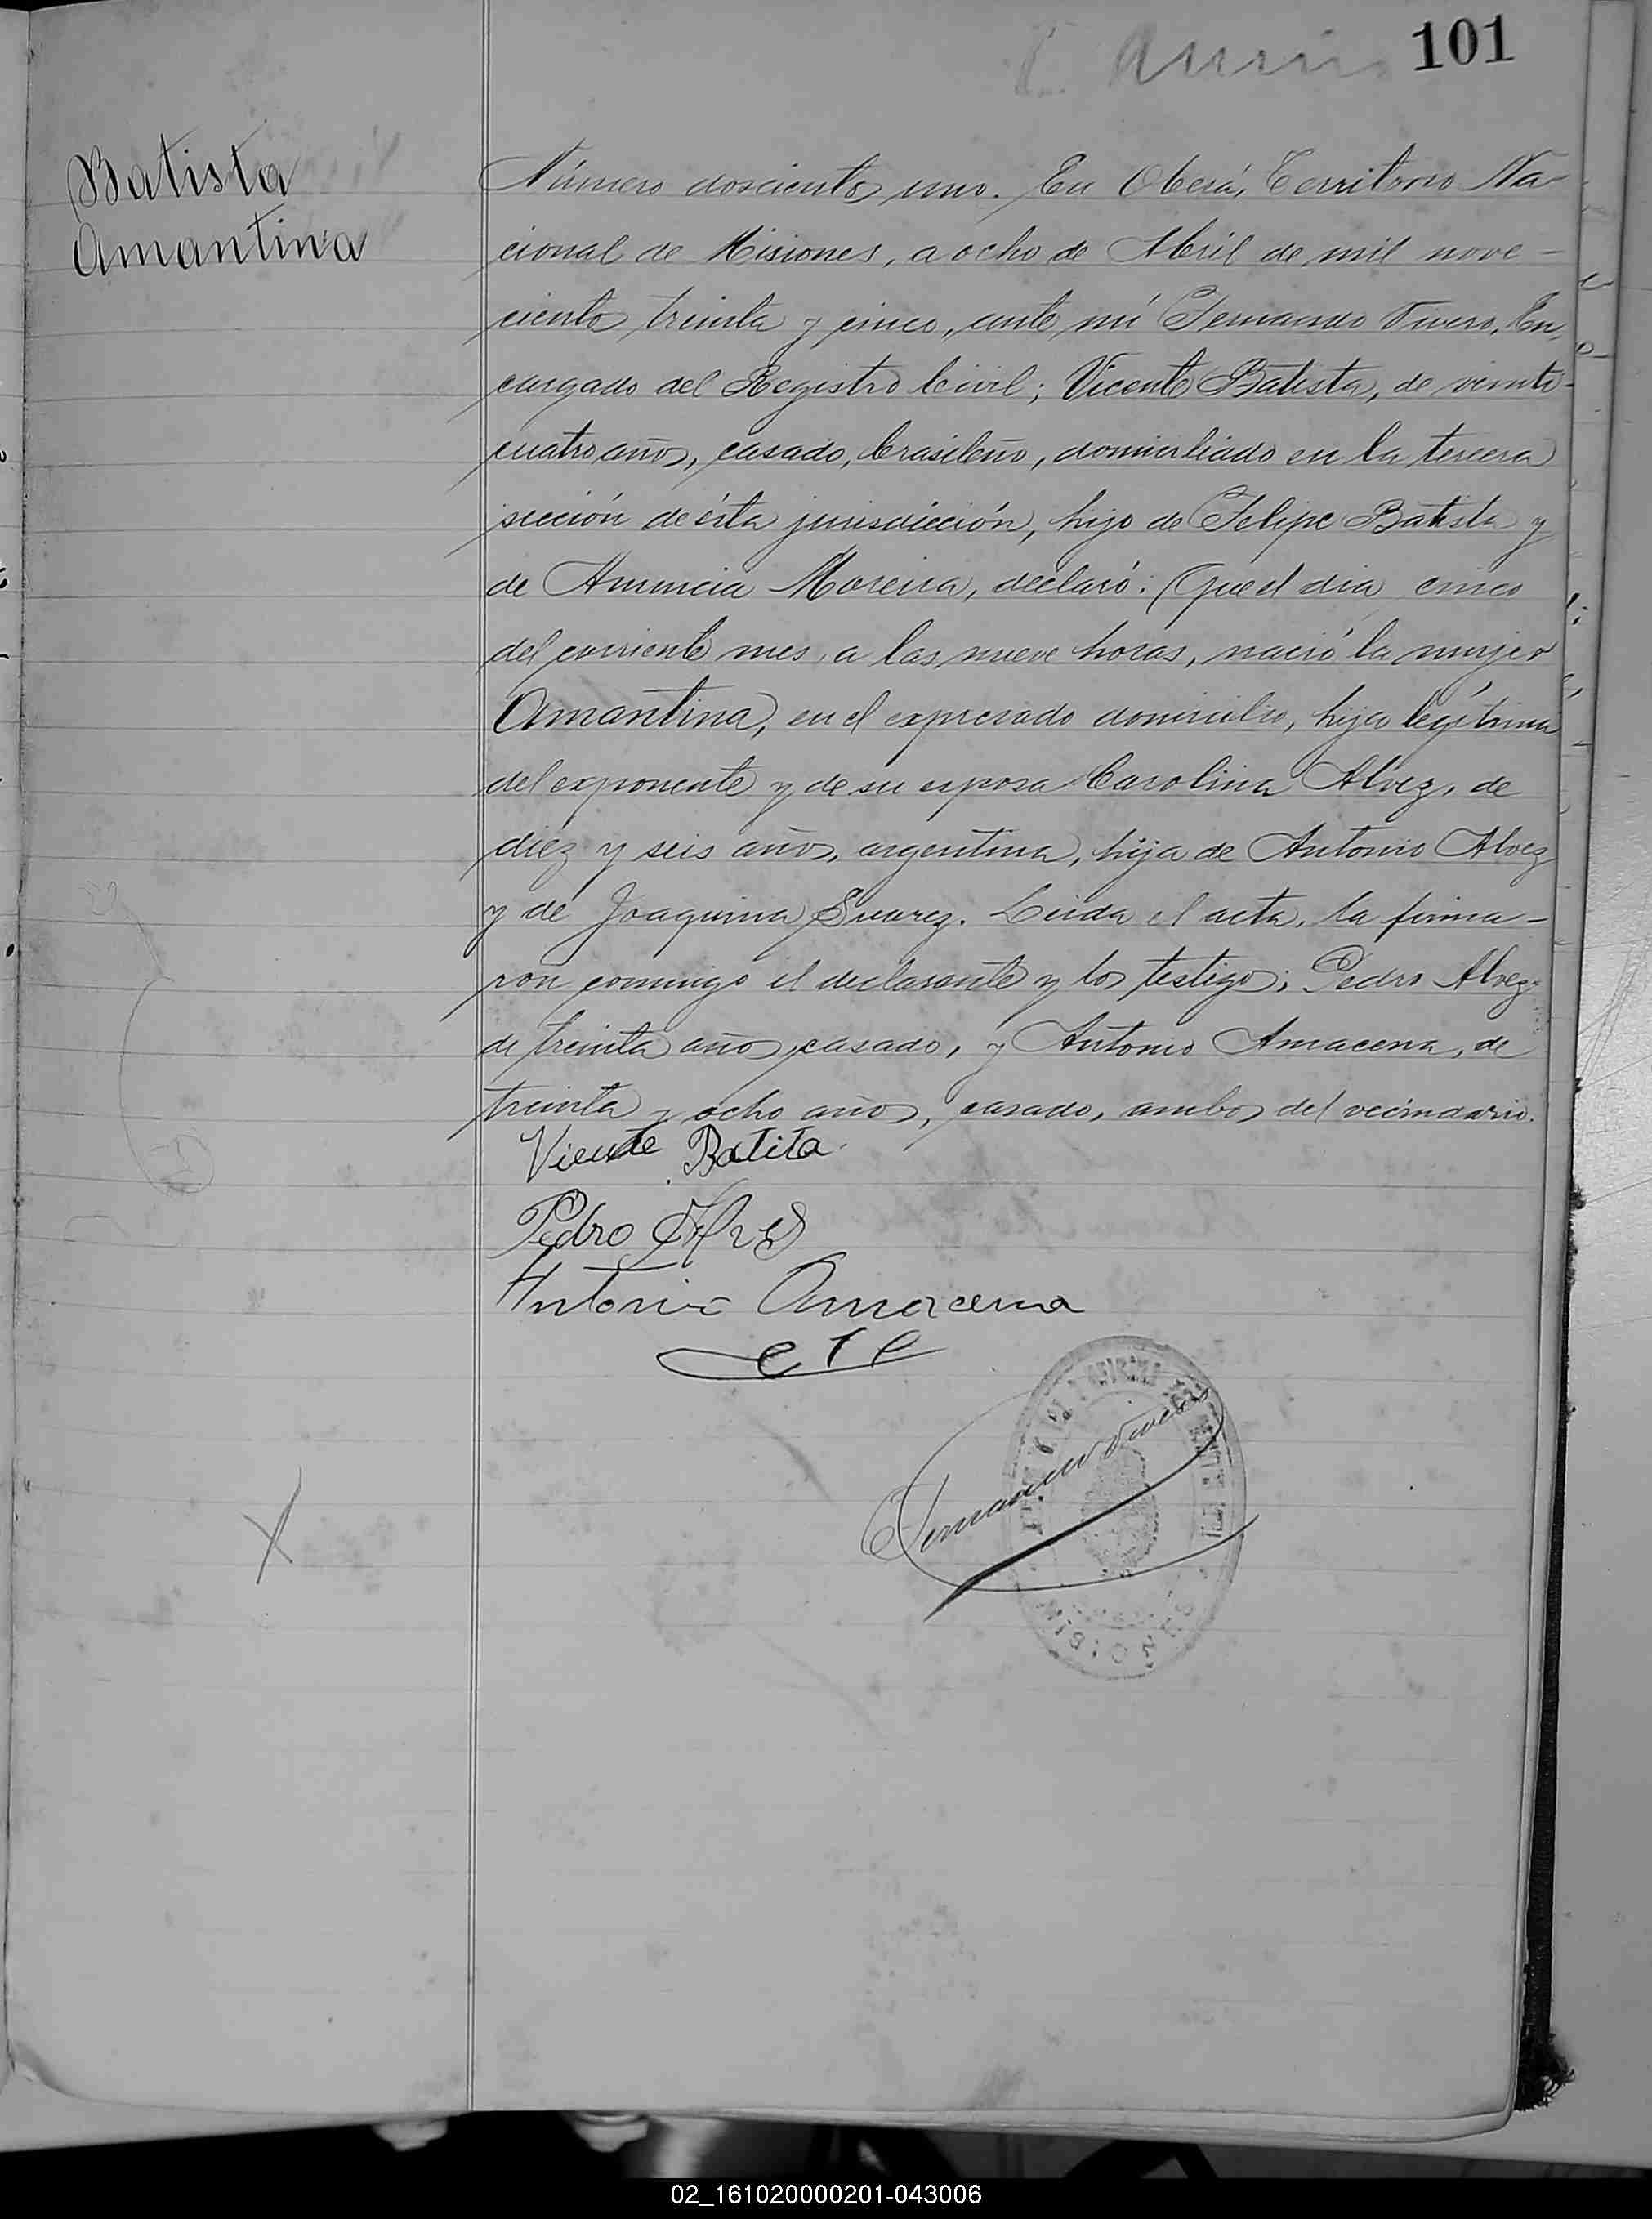 101
Batista
Amantina
Número doscientos uno. En Oberá, Territorio Na-
cional de Misiones, a ocho de Abril de mil nove-
cientos treinta y cinco, ante mí Fernando Vivero, En-
cargado del Registro Civil; Vicente Batista, de veinti-
cuatro años, casado, brasileño, domiciliado en la tercera
sección de ésta jurisdicción, hijo de Felipe Batista y
de Anuncia Moreira, declaró: Que el dia cinco
del corriente mes, a las nueve horas, nació la mujer
Amantina, en el expresado domicilio, hija legítima
del exponente y de su esposa Carolina Alvez, de
diez y seis años, argentina, hija de Antonio Alvez
y de Joaquina Suarez. Leida el acta, la firma-
ron conmigo el declarante y los testigos; Pedro Alvez
de treinta años, casado, y Antonio Amacena, de
treinta y ocho años, casado, ambos del vecindario.
Vicente Batita
Pedro
Antonio Amacena
02_161020000201-043006